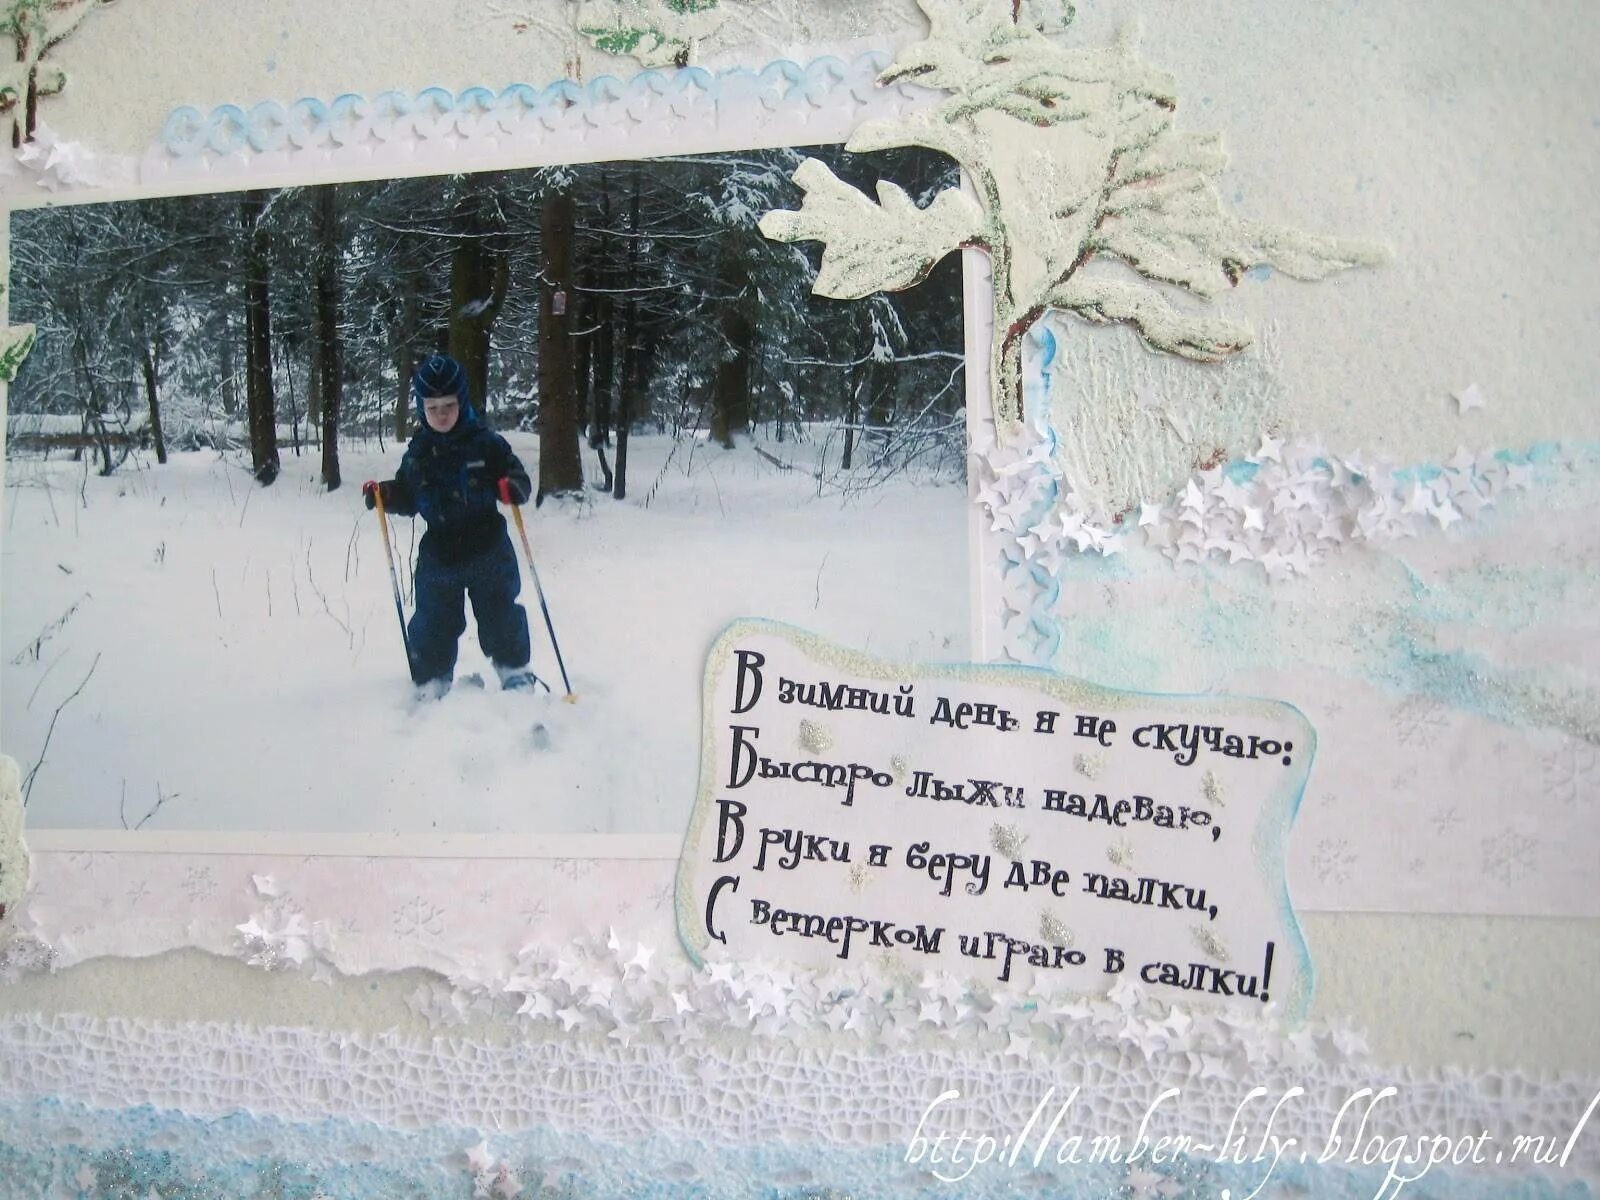 В зимний день я не скучаю:
Быстро лыжи надеваю,
В руки я беру две палки,
С ветерком играю в салки!
http://amber-lily.blogspot.ru/